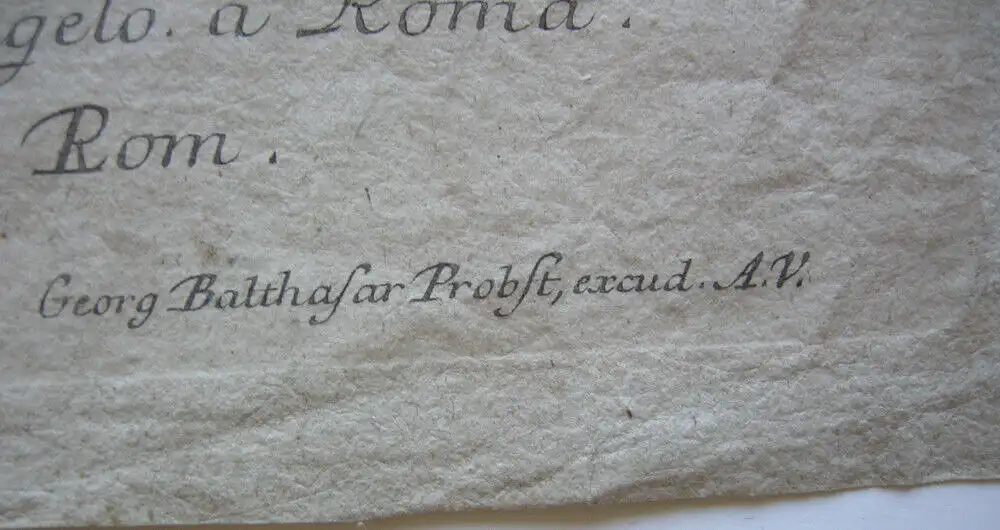 gelo. a Roma.
Rom.
Georg Balthaſar Probſt, excud. A.V.